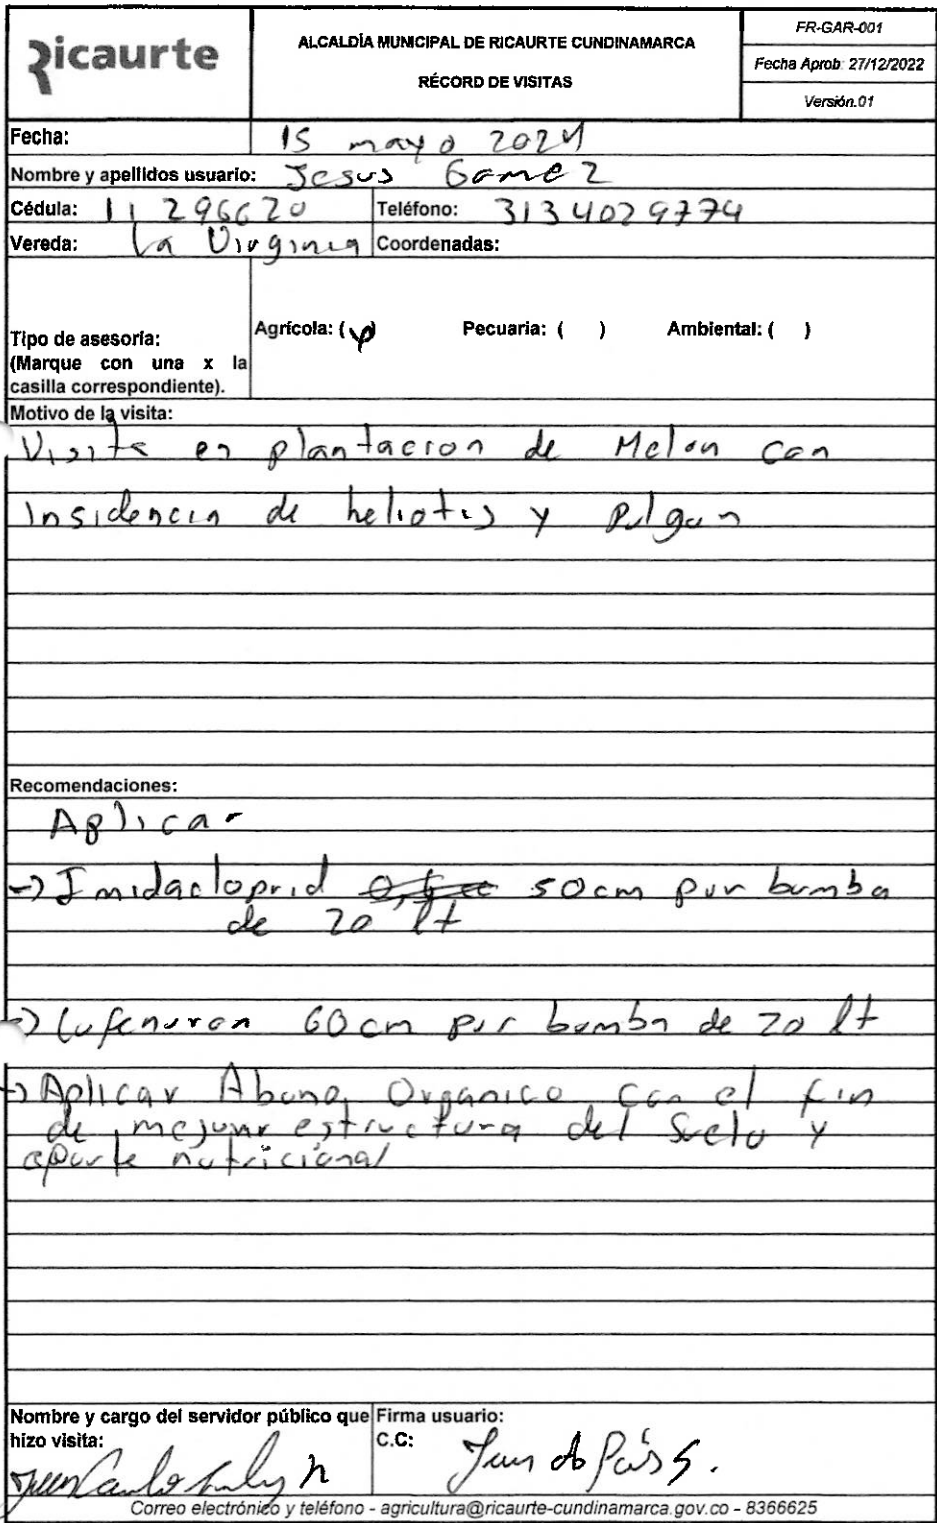 Ricaurte
ALCALDÍA MUNICIPAL DE RICAURTE CUNDINAMARCA
RÉCORD DE VISITAS
FR-GAR-001
Fecha Aprob: 27/12/2022
Versión.01
Fecha: 15 mayo 2024
Nombre y apellidos usuario: Jesus Gamez
Cédula: 11 296620 Teléfono: 3134029774
Vereda: La Virginia Coordenadas:
Tipo de asesoría:
(Marque con una x la
casilla correspondiente).
Agrícola: ( ) Pecuaria: ( ) Ambiental: ( )
Motivo de la visita:
Visita en plantacion de Melon con
Insidencia de heliotis y Pulgon
Recomendaciones:
Aplicar
-) Imidacloprid 50cm por bomba
de 20 lt
-) Lufenuron 60cm por bomba de 20 lt
-) Aplicar Abono Organico con el fin
de mejorar estructura del Suelo y
aporte nutricional
Nombre y cargo del servidor público que
hizo visita:
Firma usuario:
C.C:
Correo electrónico y teléfono - agricultura@ricaurte-cundinamarca.gov.co - 8366625